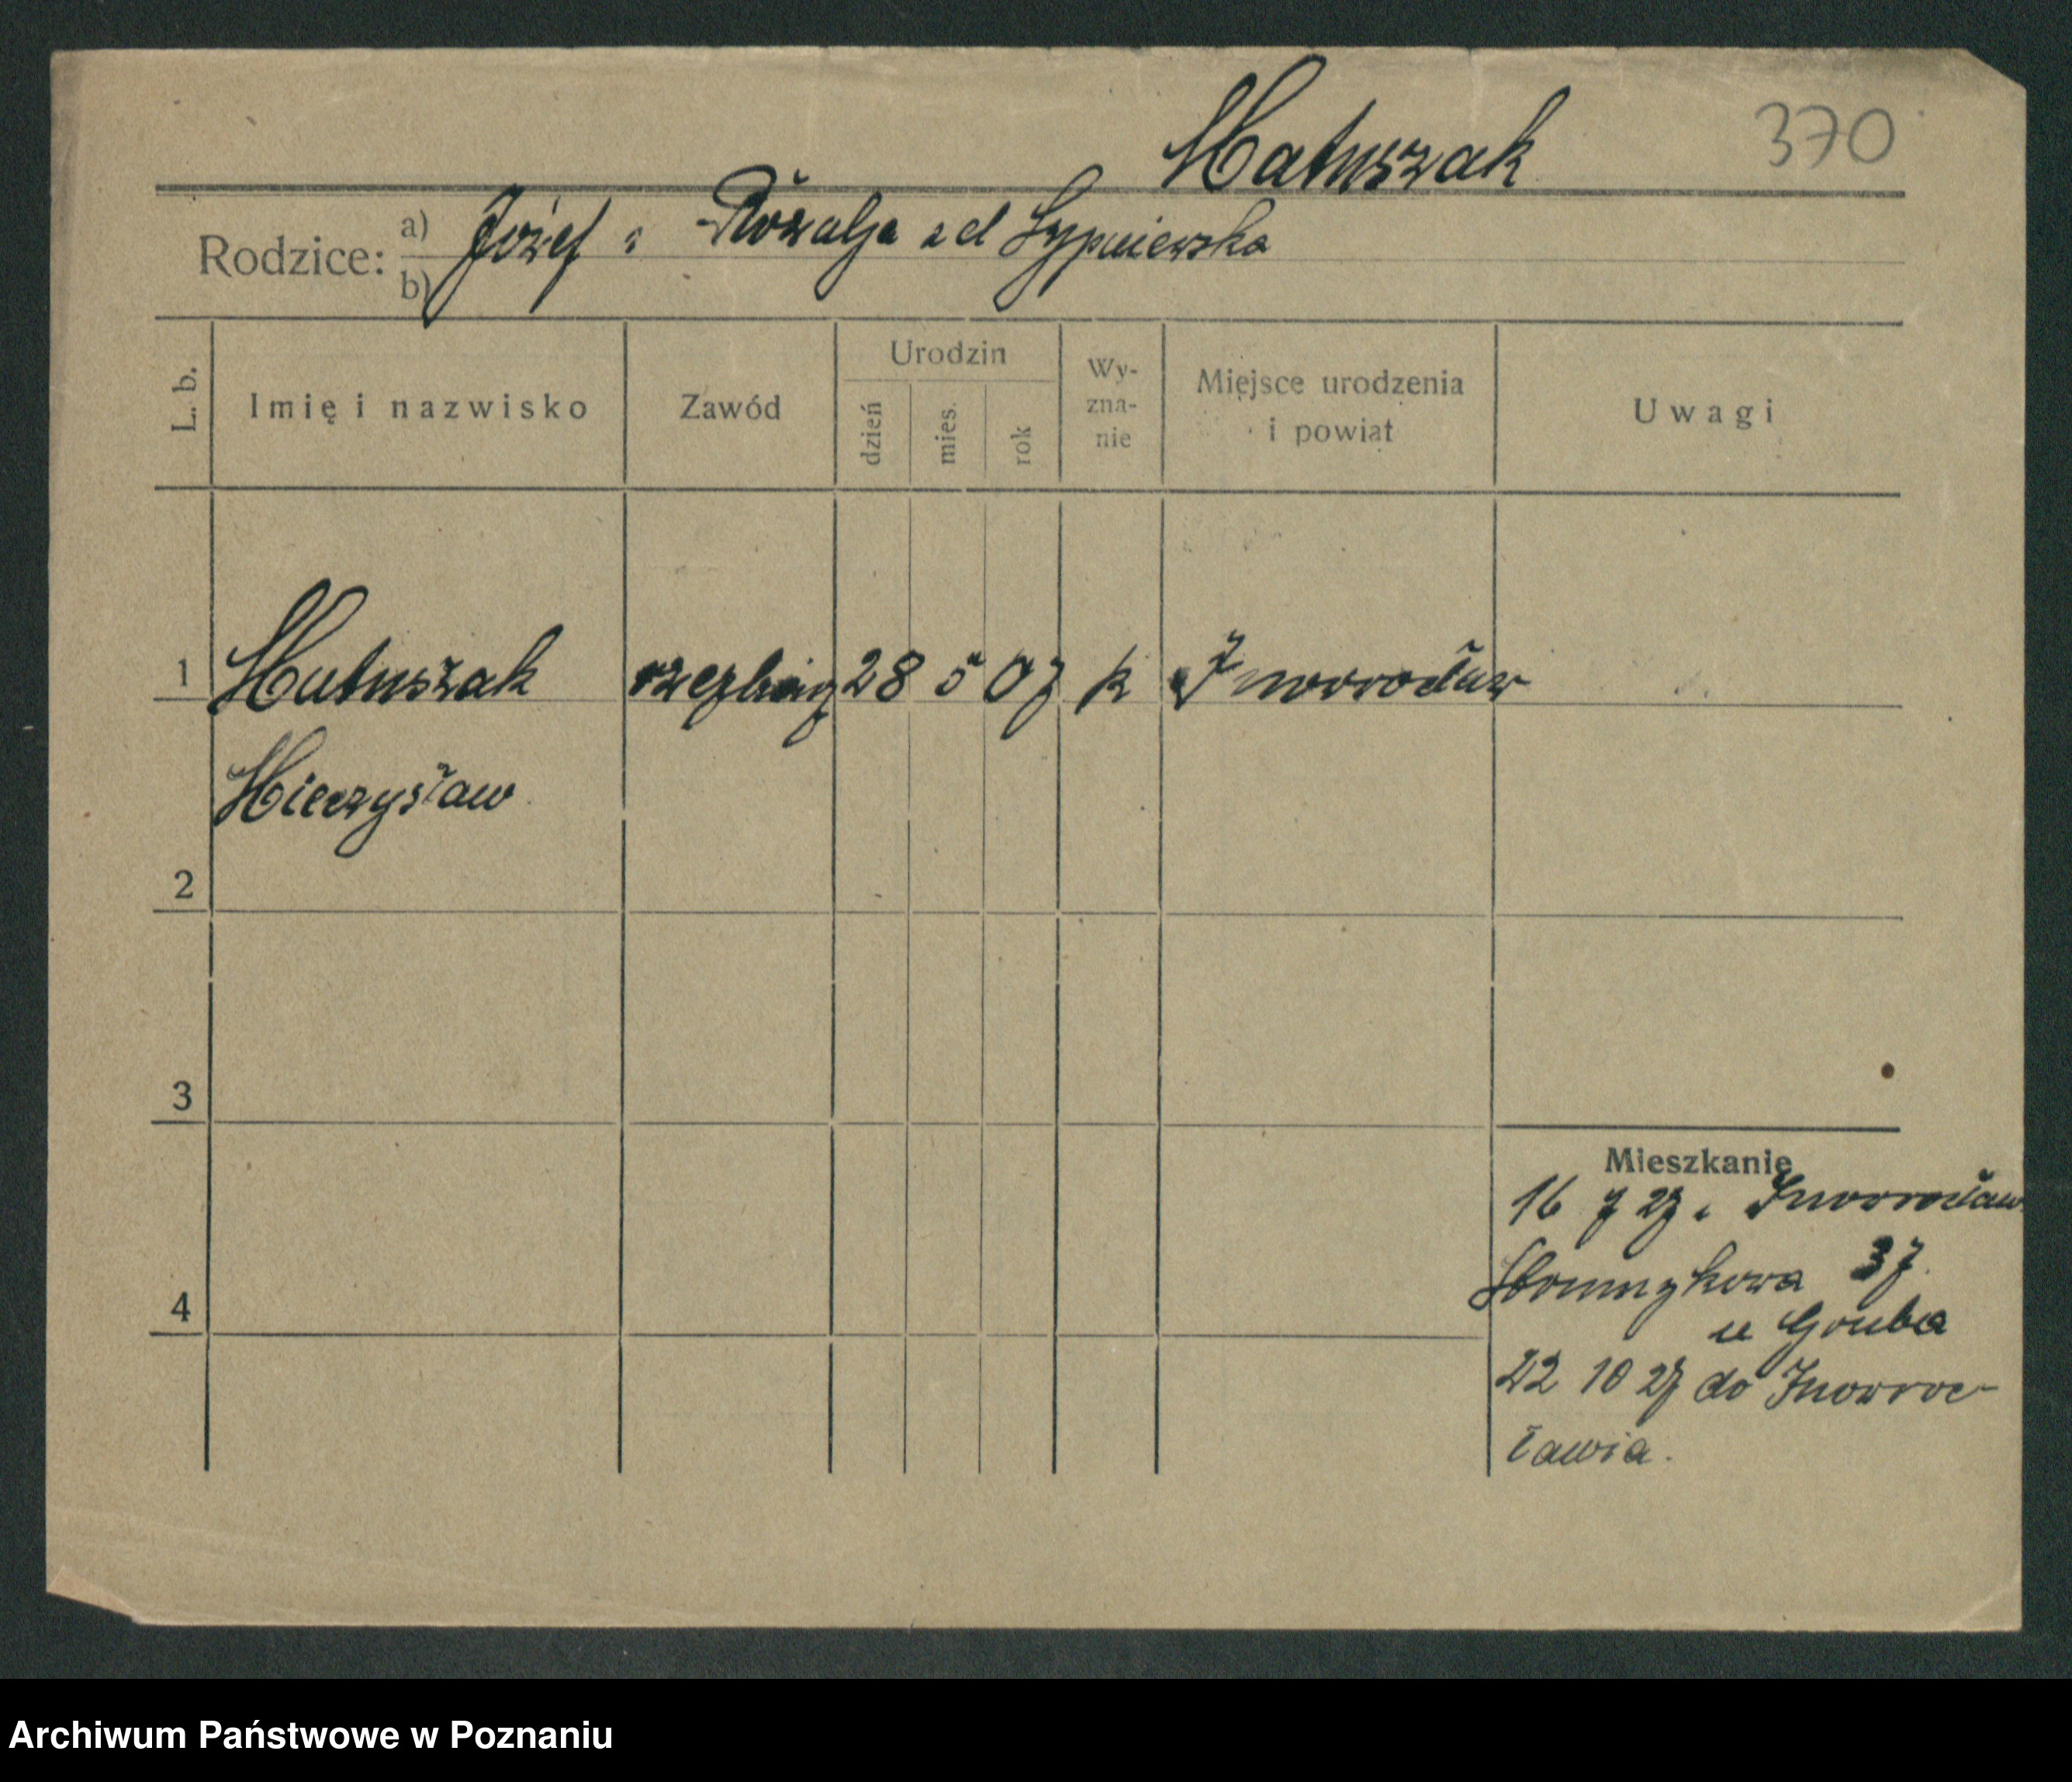 Matuszak 370
Rodzice: a) Józef i Rózalja z d Lypniewska
b)
L. b. Imię i nazwisko Zawód Urodzin dzień mies. rok Wy-zna-nie Miejsce urodzenia i powiat Uwagi
1 Matuszak 28 5 07 k Inowrocław
Mieczysław
2
3
Mieszkanie
16 7 27 Inowrocław
37
4
u Gruba
22 10 27 do Inowroc-
ławia.
Archiwum Państwowe w Poznaniu